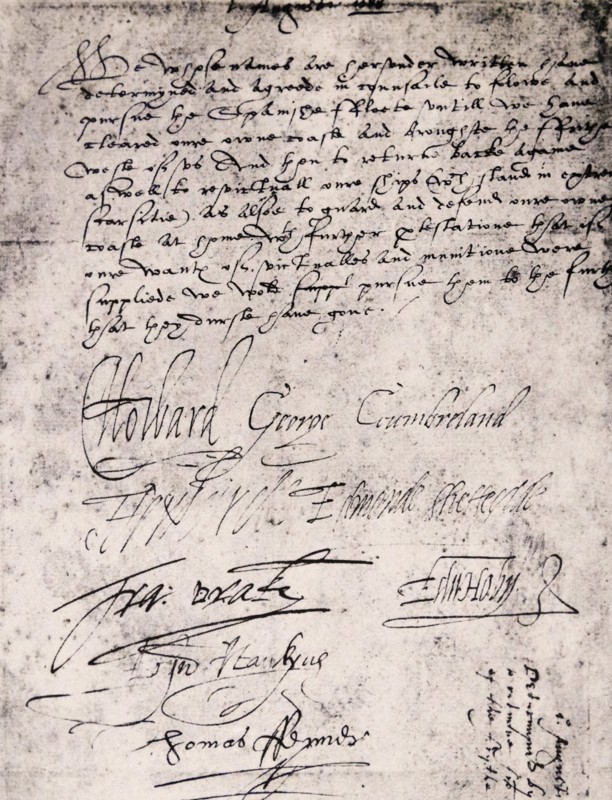 1 Auguste 1588
We whose names are hereunder written have
determyned and agreede in counsaile to folowe and
pursue the Spanishe Fleete untill we have
cleared oure owne coaste and broughte the Frithe
weste of us And then to returne backe againe
as well to revictuall oure ships (wch stand in extreme
scarsitie) as alsoe to guard and defend oure owne
coaste at home wth further protestatione that if
oure wants of victualles and munitione were
suppliede we wold pursue them to the furthest
that they durste have gone.
C Howard George Cumbreland
Edmonde Sheffeylde
Fra: Drake Edw Hoby
John Hawkyns
Thomas Fenner